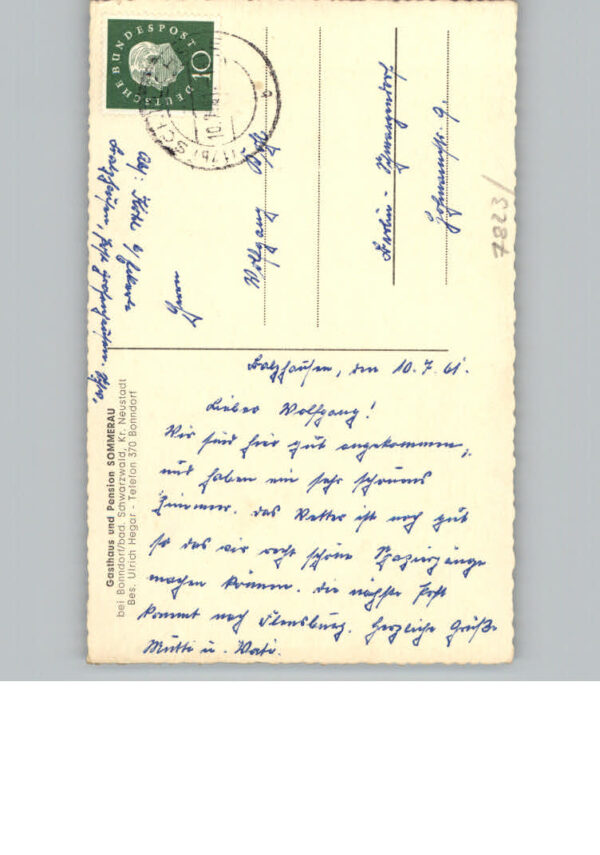 Gasthaus und Pension SOMMERAU
bei Bonndorf/bad. Schwarzwald, Kr. Neustadt
Bes. Ulrich Hegar - Telefon 370 Bonndorf
Balzhausen, den 10.7.61.
Lieber Wolfgang!
Wir sind hier gut angekommen,
und haben ein sehr schönes
Zimmer. Das Wetter ist noch gut
so das wir recht schöne Spaziergänge
machen können. Die nächste Post
kommt nach Flensburg. Herzliche Grüße
Mutti u. Vati.
DEUTSCHE BUNDESPOST
10
Abs:
Balzhausen, Post
Herrn
Wolfgang
Berlin - Schmargendorf
9.
7823/